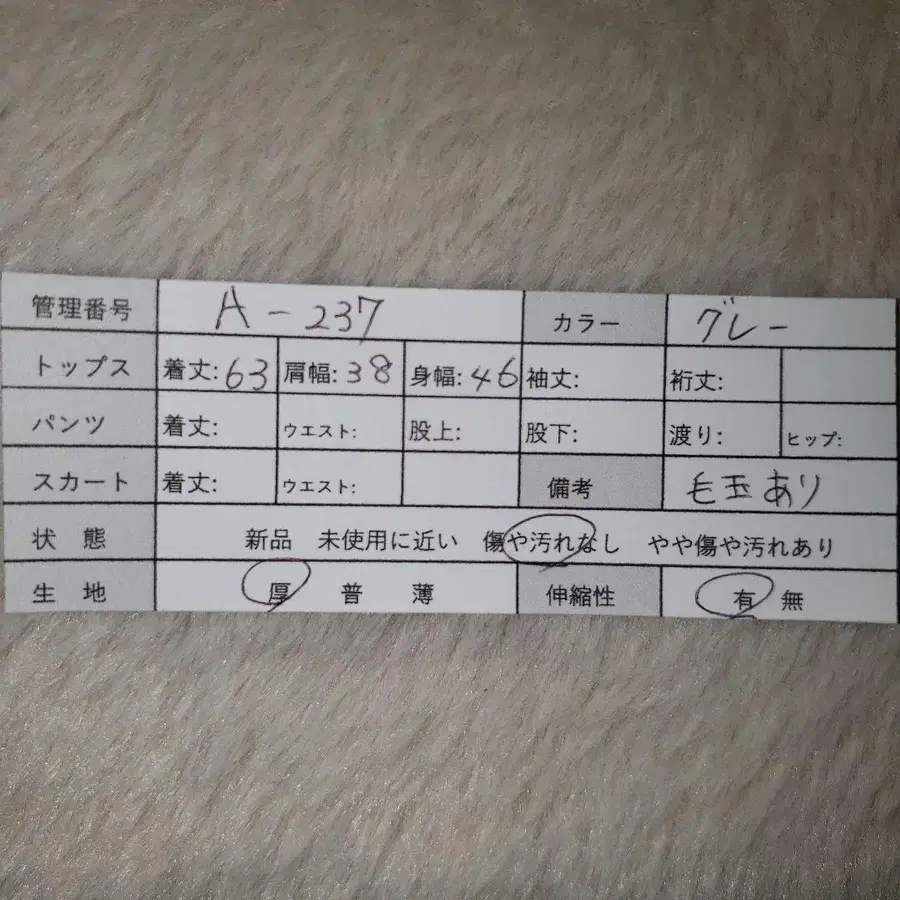 管理番号 A-237 カラー グレー
トップス 着丈:63 肩幅:38 身幅:46 袖丈: 裄丈:
パンツ 着丈: ウエスト: 股上: 股下: 渡り: ヒップ:
スカート 着丈: ウエスト: 備考 毛玉あり
状態 新品 未使用に近い 傷や汚れなし やや傷や汚れあり
生地 厚 普 薄 伸縮性 有 無